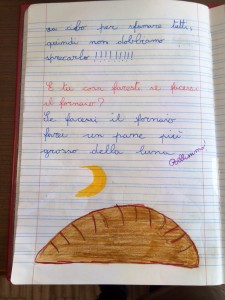 cibo per sfamare tutti,
quindi non dobbiamo
sprecarlo !!!!!!!!
E tu cosa faresti se facessi
il fornaio?
Se facessi il fornaio
farei un pane più
grosso della luna
Bellissimo